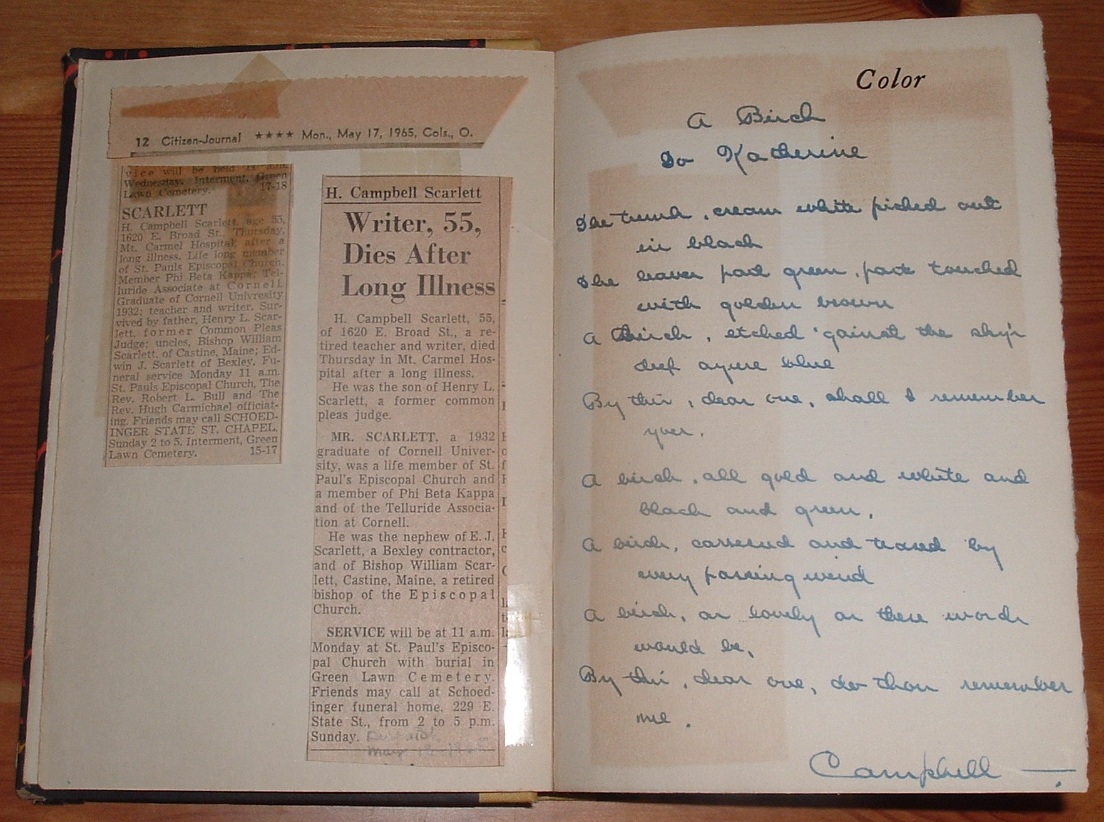 12 Citizen-Journal ★★★★ Mon., May 17, 1965, Cols., O.
vice will be held
Wednesday. Interment, Green
Lawn Cemetery. 17-18
SCARLETT
H. Campbell Scarlett, age 55,
1620 E. Broad St., Thursday,
Mt. Carmel Hospital; after a
long illness. Life long member
of St. Pauls Episcopal Church.
Member Phi Beta Kappa; Tel-
luride Associate at Cornell.
Graduate of Cornell University
1932; teacher and writer. Sur-
vived by father, Henry L. Scar-
lett, former Common Pleas
Judge; uncles, Bishop William
Scarlett, of Castine, Maine; Ed-
win J. Scarlett of Bexley. Fu-
neral service Monday 11 a.m.
St. Pauls Episcopal Church, The
Rev. Robert L. Bull and The
Rev. Hugh Carmichael officiat-
ing. Friends may call SCHOED-
INGER STATE ST. CHAPEL,
Sunday 2 to 5. Interment, Green
Lawn Cemetery. 15-17
H. Campbell Scarlett
Writer, 55,
Dies After
Long Illness
H. Campbell Scarlett, 55,
of 1620 E. Broad St., a re-
tired teacher and writer, died
Thursday in Mt. Carmel Hos-
pital after a long illness.
He was the son of Henry L.
Scarlett, a former common
pleas judge.
MR. SCARLETT, a 1932
graduate of Cornell Univer-
sity, was a life member of St.
Paul's Episcopal Church and
a member of Phi Beta Kappa
and of the Telluride Associa-
tion at Cornell.
He was the nephew of E. J.
Scarlett, a Bexley contractor,
and of Bishop William Scar-
lett, Castine, Maine, a retired
bishop of the Episcopal
Church.
SERVICE will be at 11 a.m.
Monday at St. Paul's Episco-
pal Church with burial in
Green Lawn Cemetery.
Friends may call at Schoed-
inger funeral home, 229 E.
State St., from 2 to 5 p.m.
Sunday.
Color
A Birch
To Katherine
The trunk, cream white picked out
in black
The leaves part green, part touched
with golden brown
A Birch, etched 'gainst the sky's
deep azure blue
By this, dear one, shall I remember
you.
A birch, all gold and white and
black and green,
A birch, caressed and teased by
every passing wind
A birch, as lovely as these words
would be,
By this, dear one, do thou remember
me.
Campbell —.